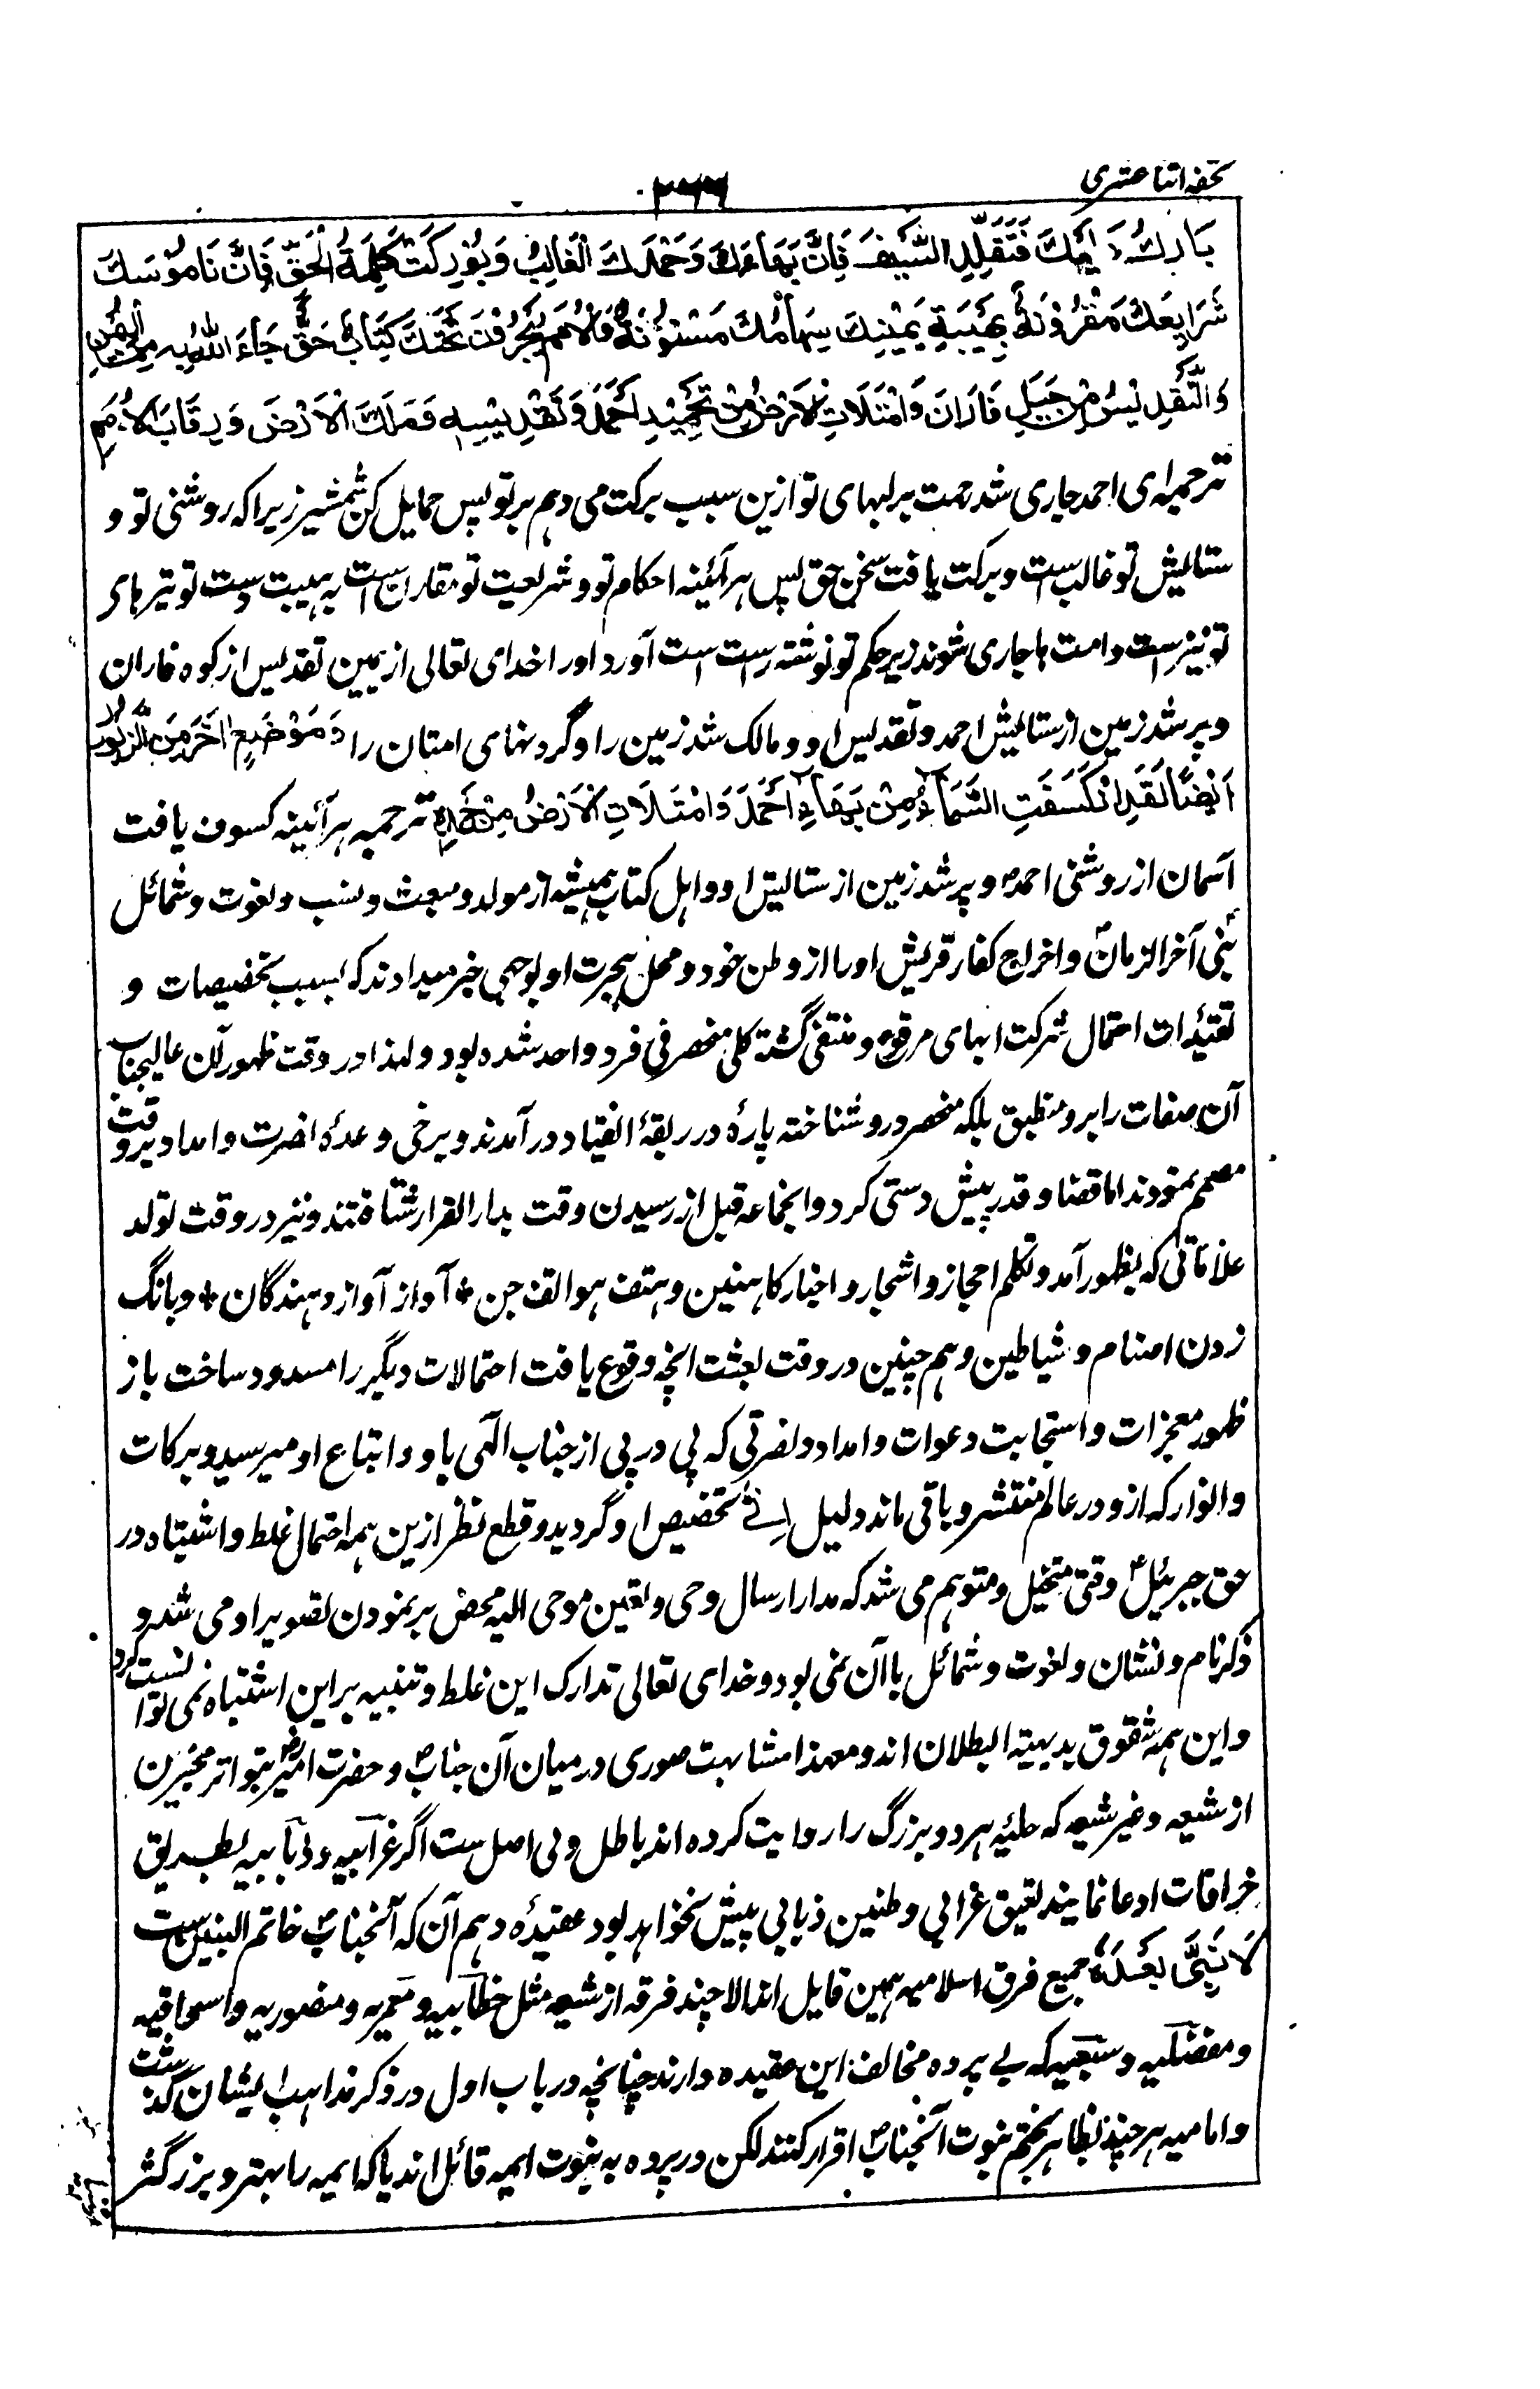 تحفه اثنا عشری
بَارِكُ عَلَيْكَ فَتَقَلَّدِ السَّيْفَ فَاِنَّ بَهَاءَكَ وَحَمْدَكَ الْغَالِبُ وَبُوْرِكَتْ كَلِمَةُ الْحَقِّ فَاِنَّ نَامُوْسَكَ
شَرَايِعَكَ مَقْرُوْنَةٌ بِهَيْبَةِ يَمِيْنِكَ سِهَامُكَ مَسْنُوْنَةٌ وَالْاُمَمُ يَجُرُّوْنَ تَحْتَكَ كِتَابٌ حَقٌّ جَاءَ اللهُ بِهٖ مِنَ الْيُمْنِ
وَالتَّقْدِيْسُ مِنْ جَبَلِ فَارَانَ وَامْتَلَاتِ الْاَرْضُ مِنْ تَحْمِيْدِ اَحْمَدَ وَتَقْدِيْسِهٖ وَمَلَكَ الْاَرْضَ وَرِقَابَ الْاُمَمِ
ترجمه ای احمد جاری شد رحمت بر لبهای تو ازین سبب برکت می دهم بر تو پس حمایل کن شمشیر زیراکه روشنی تو و
ستایش تو غالب است و برکت یافت سخن حق پس هر آئینه احکام تو و شریعت تو مقارن است به هیبت دست تو تیرهای
تو نیز است و امت ها جاری شوند زیر حکم تو نوشته راست است آورد او را خدای تعالی از یمین تقدیس از کوه فاران
و پر شد زمین از ستایش احمد و تقدیس او و مالک شد زمین را و گردنهای امتان را وَمَوْضَعٍ اٰخَرَ مِنَ الزَّبُوْرِ
اَيْضًا لَقَدِ انْكَسَفَتِ السَّمَاءُ مِنْ بَهَاءِ اَحْمَدَ وَامْتَلَاتِ الْاَرْضُ مِنْ حَمْدِهٖ ترجمه هر آئینه کسوف یافت
آسمان از روشنی احمدؐ و پر شد زمین از ستایش او و اهل کتاب همیشه از مولد و مبعث و نسب و نعوت و شمائل
نبی آخر الزمانؐ و اخراج کفار قریش او را از وطن خود و محل هجرت او بوجهی خبر میدادند که بسبب تخصیصات و
تقئیدات احتمال شرکت ابهای مرفوع و منتفی گشته کلی منحصر فی فرد واحد شده بود و لهذا در وقت ظهور آن عالیجناب
آن صفات را برو منطبق بلکه منحصر درو شناخته پارهٔ در ربقهٔ انقیاد در آمدند و برخی وعدهٔ نصرت و امداد برو وقت
مصمم نمودند اما قضا و قدر پیش دستی کرد و اینجماعه قبل از رسیدن وقت بدار القرار شتافتند و نیز در وقت تولد
علاماتی که بظهور آمد و تکلم احجاز و اشجار و اخبار کاهنین و هتف هوالف جن * آواز آواز دهندگان * و بانگ
زدن اصنام و شیاطین و هم چنین در وقت بعثت انچه وقوع یافت احتمالات دیگر را مسدود ساخت باز
ظهور معجزات و استجابت دعوات و امداد و نصرتی که پی در پی از جناب الٰهی باو و اتباع او میرسید و برکات
و انوار که ازو در عالم منتشر و باقی ماند دلیل انی تخصیص او گردید و قطع نظر ازین همه احتمال غلط و اشتباه در
حق جبرئیلؑ وقتی متخیل و متوهم می شد که مدار ارسال وحی و تعین موحی الیه محض بر نمودن تصویر او می شد و
ذکر نام و نشان و نعوت و شمائل با آن نمی بود و خدای تعالی تدارک این غلط و تنبیه بر این اشتباه نمی توانست کرد
و این همه شقوق بدیهیة البطلان اند و معهذا مشابهت صوری درمیان آن جنابؐ و حضرت امیرؓ بتواتر مخبرین
از شیعه و غیر شیعه که حلیهٔ هر دو بزرگ را روایت کرده اند باطل و بی اصل ست اگر غرابیه و ذبابیه بطریق
خرافات ادعا نمایند نعیق غرابی و طنین ذبابی پیش نخواهد بود عقیدهٔ دهم آن که آنجنابؐ خاتم النبیین ست
لَا نَبِيَّ بَعْدَهٗ جمیع فرق اسلامیه بهمین قایل اند الا چند فرقه از شیعه مثل خطابیه و معمریه و منصوریه و اسحاقیه
و مفضلیه و سبعیه که بے پرده مخالف این عقیده دارند چنانچه در باب اول در ذکر مذاهب ایشان گذشت
و امامیه هرچند بظاهر بختم نبوت آنجنابؐ اقرار کنند لکن در پرده به نبوت ایمه قائل اند یا که ایمه را بهتر و بزرگتر